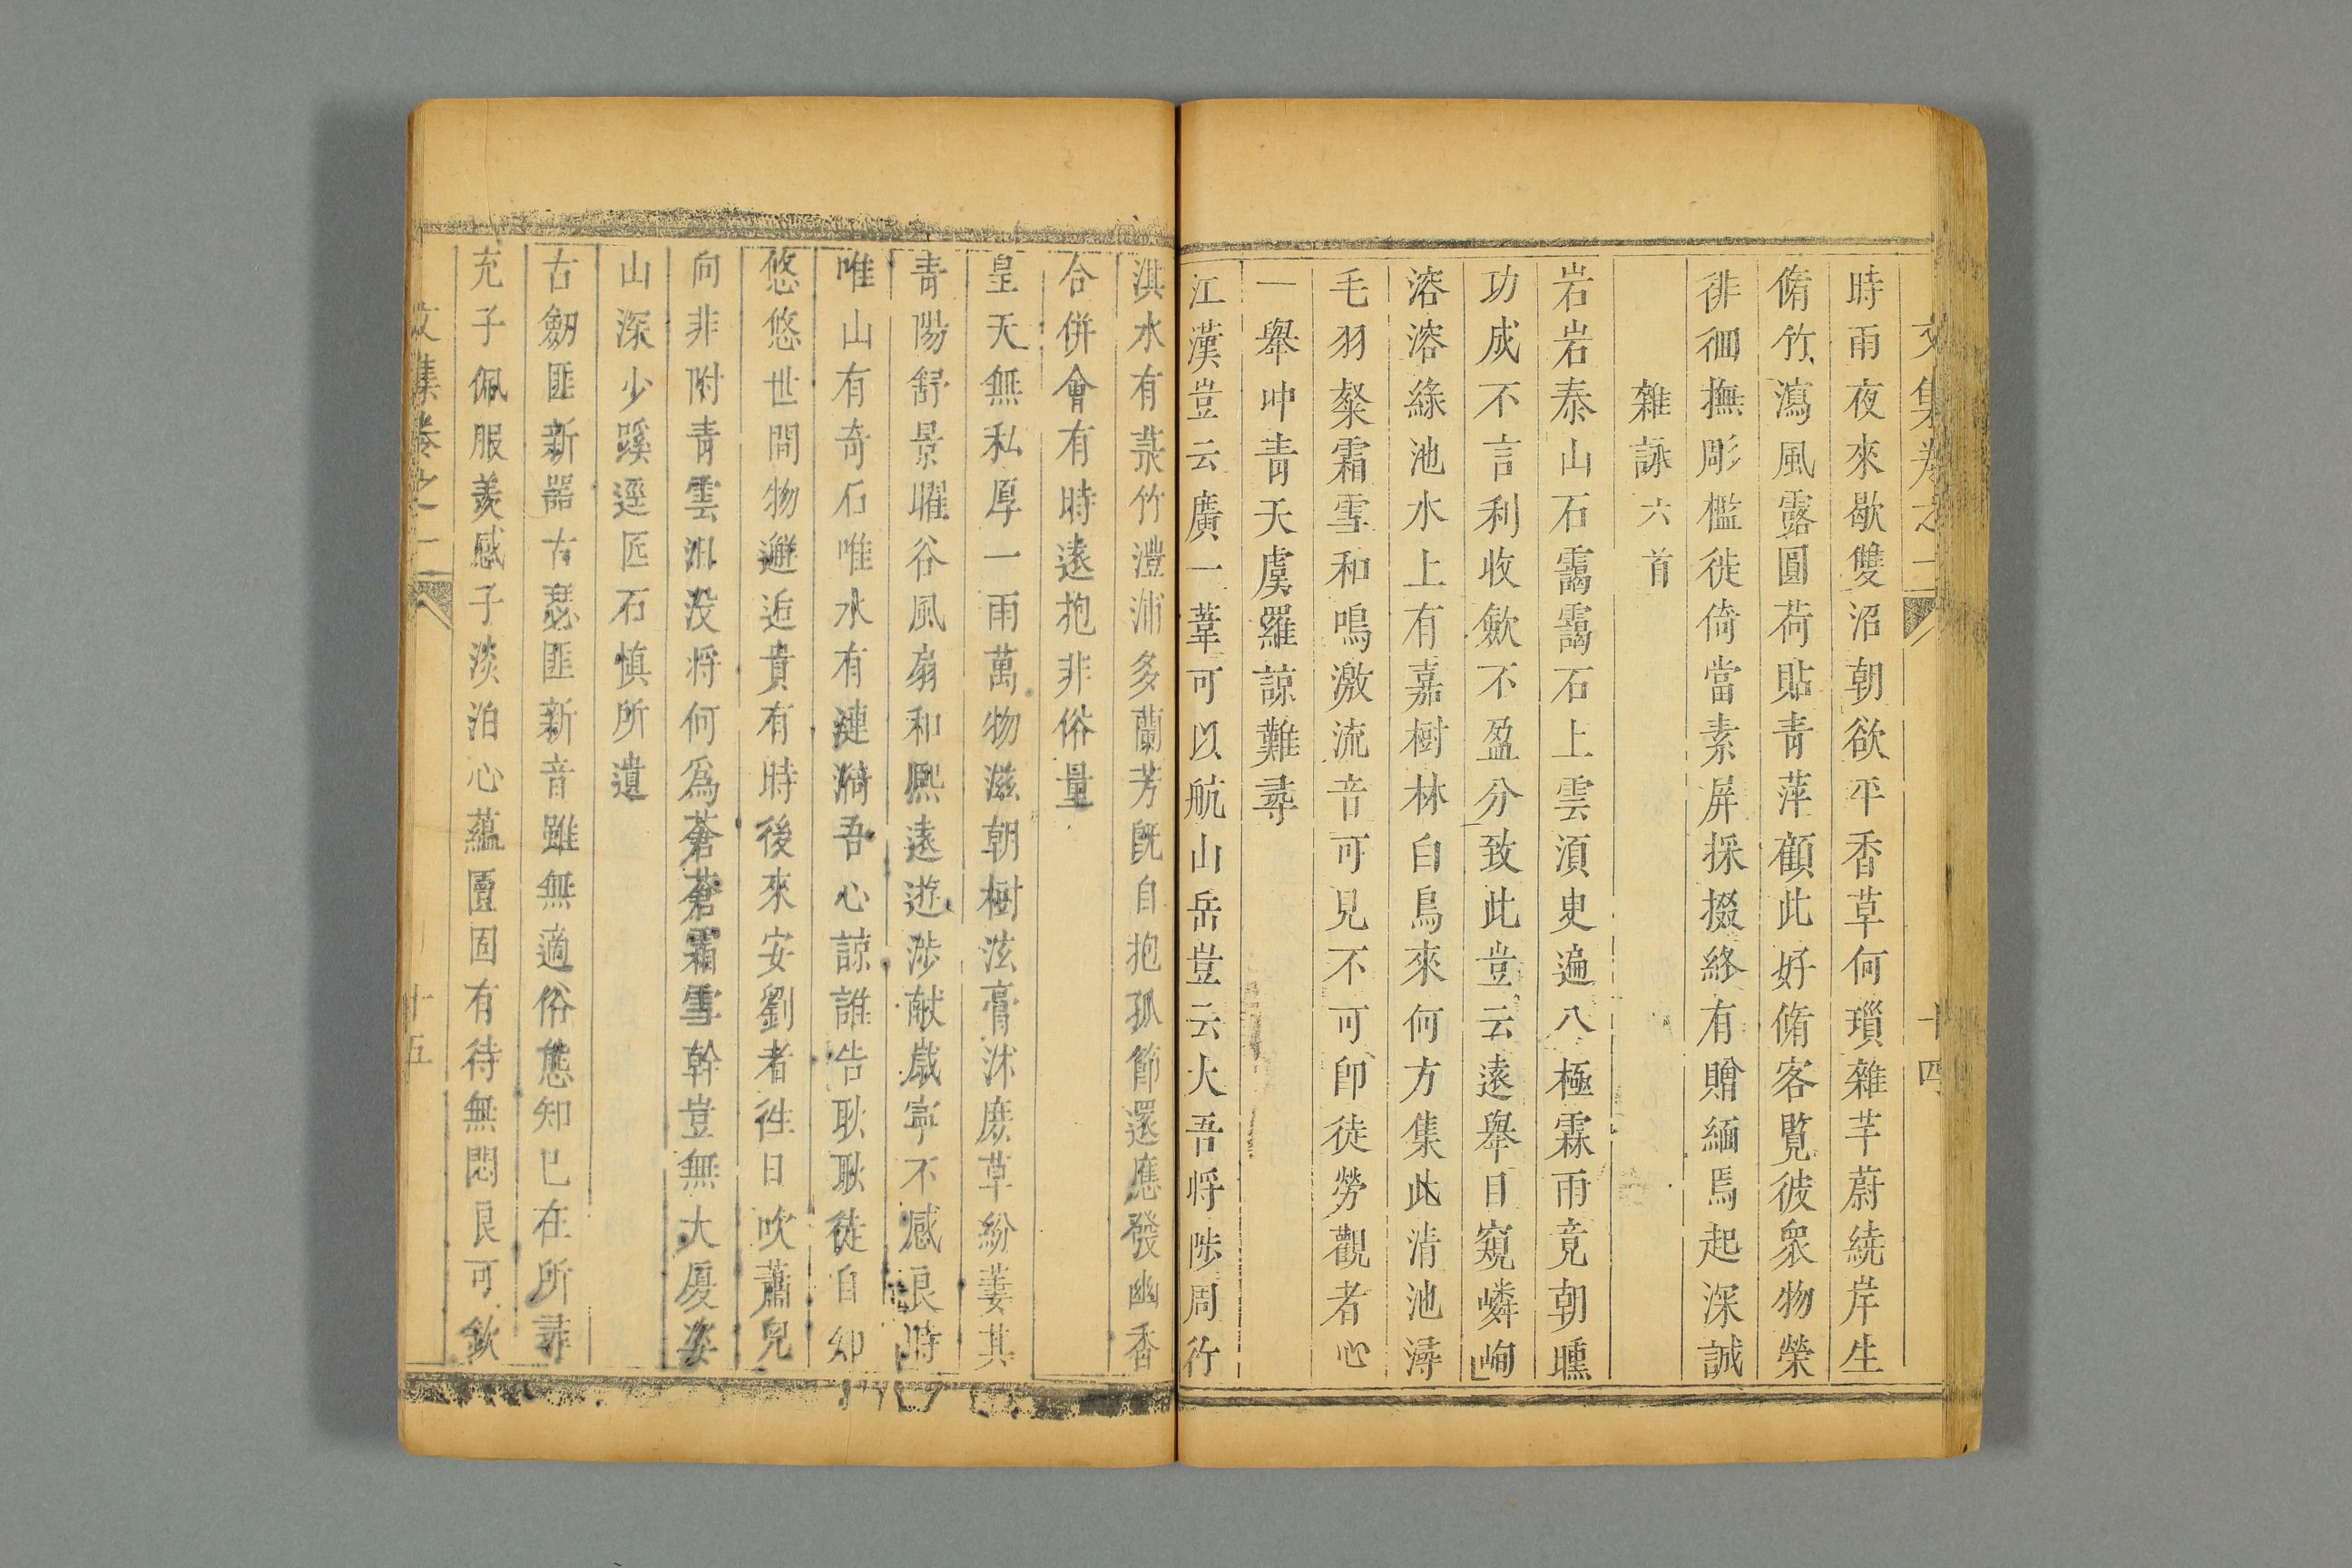 文集卷之二 十四
時雨夜來歇雙沼朝欲平香草何瑣雜芊蔚繞岸生
脩竹瀉風露圓荷貼青萍顧此好脩客覽彼衆物榮
徘徊撫彫檻徙倚當素屏採掇終有贈緬焉起深誠
雜詠六首
岩岩泰山石靄靄石上雲湏臾遍八極霖雨竟朝曛
功成不言利收歛不盈分致此豈云遠舉目窺嶙峋
溶溶綠池水上有嘉樹林白鳥來何方集此清池潯
毛羽粲霜雪和鳴激流音可見不可卽徒勞觀者心
一舉冲青天虞羅諒難尋
江漢豈云廣一葦可以航山岳豈云大吾將陟周行
淇水有菉竹澧浦多蘭芳旣自抱孤節還應發幽香
合併會有時遠抱非俗量
皇天無私厚一雨萬物滋朝樹泫膏沐庶草紛萋其
青陽舒景曜谷風扇和熈遠遊涉献歲寜不感良時
唯山有奇石唯水有漣漪吾心諒誰告耿耿徒自卹
悠悠世間物邂逅貴有時後來安劉者徃日吹蕭兒
向非附青雲汩没将何爲蒼蒼霜雪幹豈無大廈姿
山深少蹊逕匠石慎所遺
古劒匪新器古瑟匪新音雖無適俗態知已在所尋
充子佩服羨感子淡泊心蘊匵固有待無悶良可欽
文集卷之二 十五